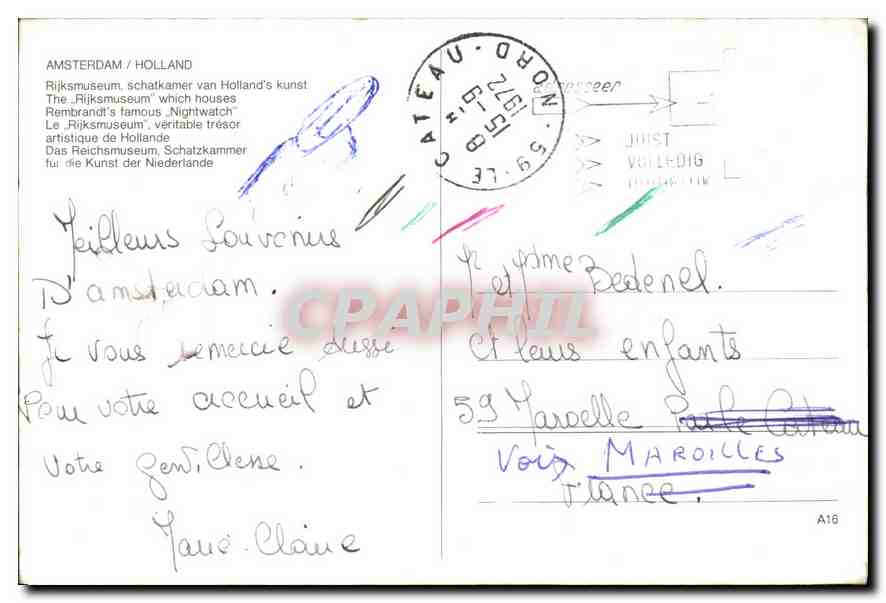 AMSTERDAM / HOLLAND
Rijksmuseum, schatkamer van Holland's kunst
The „Rijksmuseum" which houses
Rembrandt's famous „Nightwatch"
Le „Rijksmuseum", véritable trésor
artistique de Hollande
Das Reichsmuseum, Schatzkammer
fur die Kunst der Niederlande
59 - LE CATEAU - NORD
15 H
6 - 8
1972
adresseer
JUIST
VOLLEDIG
DUIDELIJK
Meilleurs Souvenirs
D'amsterdam.
Je vous remercie aussi
Pour votre accueil et
votre gentillesse.
Marie-Claire
Mr et Mme Bedenel.
et leurs enfants
59 Maroelle Par le Cateau
Voir MAROILLES
France.
A16
CPAPHIL